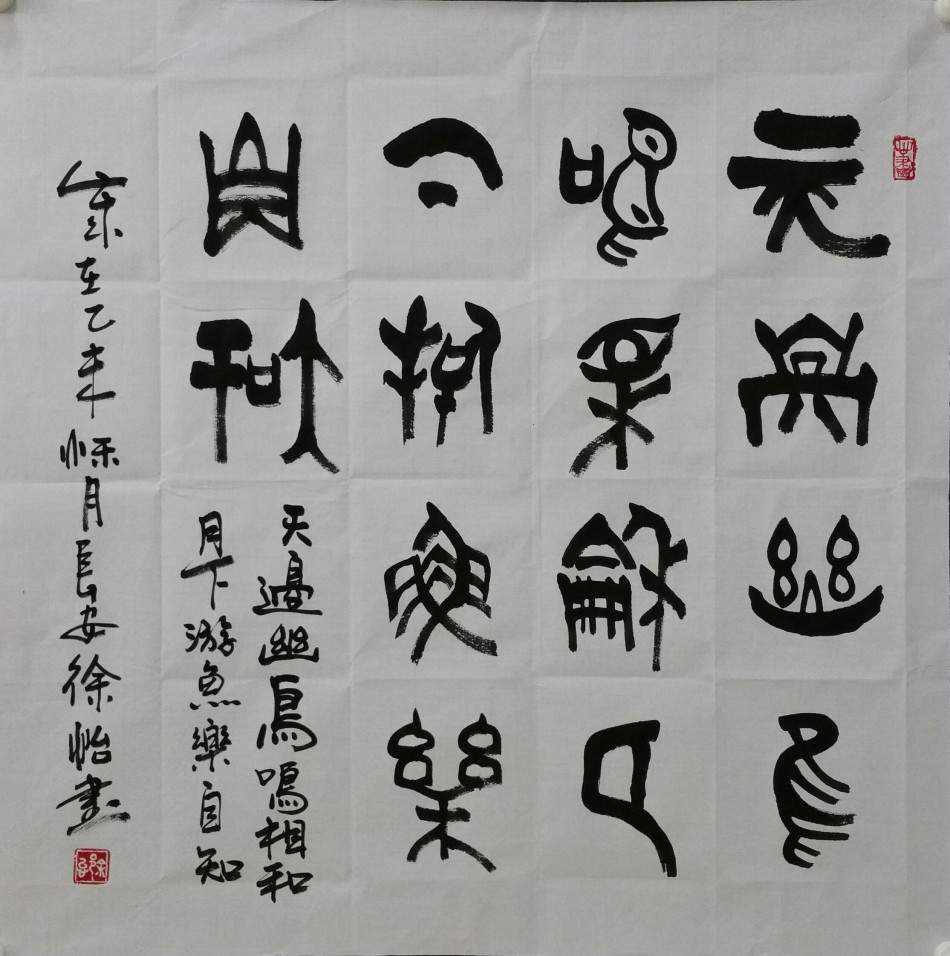 天邊幽鳥
鳴相和月
下游魚樂
自知
天邊幽鳥鳴相和
月下游魚樂自知
歲在乙未秌月長安徐怡書